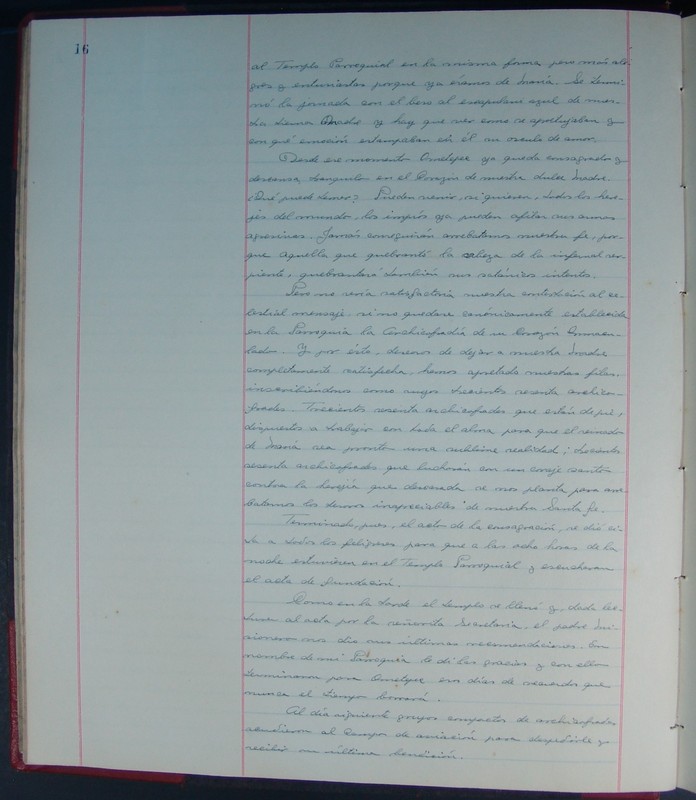 16
al Templo Parroquial en la misma forma, pero más ale-
gres y entusiastas porque ya éramos de María. Se termi-
nó la jornada con el beso al escapulario azul de nues-
tra tierna Madre y hay que ver como se apretujaban y
con qué emoción estampaban en él su ósculo de amor.
Desde ese momento Ometepe ya queda consagrado y
descansa tranquilo en el Corazón de nuestra dulce Madre.
¿Qué puede temer? Pueden venir, si quieren, todos los here-
jes del mundo, los impíos ya pueden afilar sus armas
agresivas. Jamás conseguirán arrebatarnos nuestra fe, por-
que Aquella que quebrantó la cabeza de la infernal ser-
piente, quebrantará también sus satánicos intentos.
Pero no sería satisfactoria nuestra contestación al ce-
lestial mensaje, si no quedase canónicamente establecida
en la Parroquia la Archicofradía de su Corazón Inmacu-
lado. Y por ésto, deseosos de dejar a nuestra Madre
completamente satisfecha, hemos apretado nuestras filas,
inscribiéndonos como suyos trecientos sesenta archico-
frades. Trecientos sesenta archicofrades que están de pie,
dispuestos a trabajar con toda el alma para que el reinado
de María sea pronto una sublime realidad; trecientos
sesenta archicofrades que lucharán con un coraje santo
contra la herejía que descarada se nos planta para arre-
batarnos los tesoros inapreciables de nuestra Santa fe.
Terminado, pues, el acto de la consagración, se dió ci-
ta a todos los feligreses para que a las ocho horas de la
noche estuvieran en el Templo Parroquial y escucharan
el acta de fundación.
Como en la tarde el templo se llenó y, dada lec-
tura al acta por la señorita Secretaria, el padre Mi-
sionero nos dio sus últimas recomendaciones. En
nombre de mi Parroquia le dí las gracias y con ello
terminaron para Ometepe esos días de recuerdos que
nunca el tiempo borrará.
Al día siguiente grupos compactos de archicofrades
acudieron al Campo de aviación para despedirle y
recibir su última bendición.